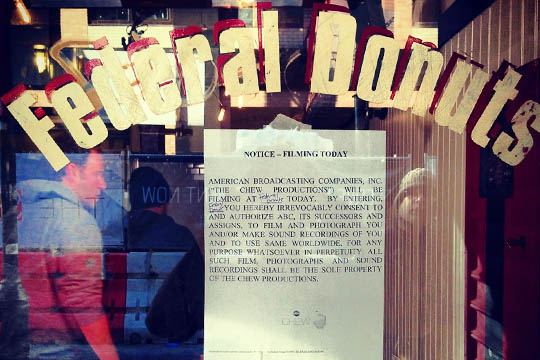 Federal Donuts
NOTICE – FILMING TODAY
AMERICAN BROADCASTING COMPANIES, INC.
("THE CHEW PRODUCTIONS") WILL BE
FILMING AT Federal Donuts TODAY. BY ENTERING,
YOU HEREBY IRREVOCABLY CONSENT TO
AND AUTHORIZE ABC, ITS SUCCESSORS AND
ASSIGNS, TO FILM AND PHOTOGRAPH YOU
AND/OR MAKE SOUND RECORDINGS OF YOU
AND TO USE SAME WORLDWIDE, FOR ANY
PURPOSE WHATSOEVER IN PERPETUITY. ALL
SUCH FILM, PHOTOGRAPHS AND SOUND
RECORDINGS SHALL BE THE SOLE PROPERTY
OF THE CHEW PRODUCTIONS.
CHEW